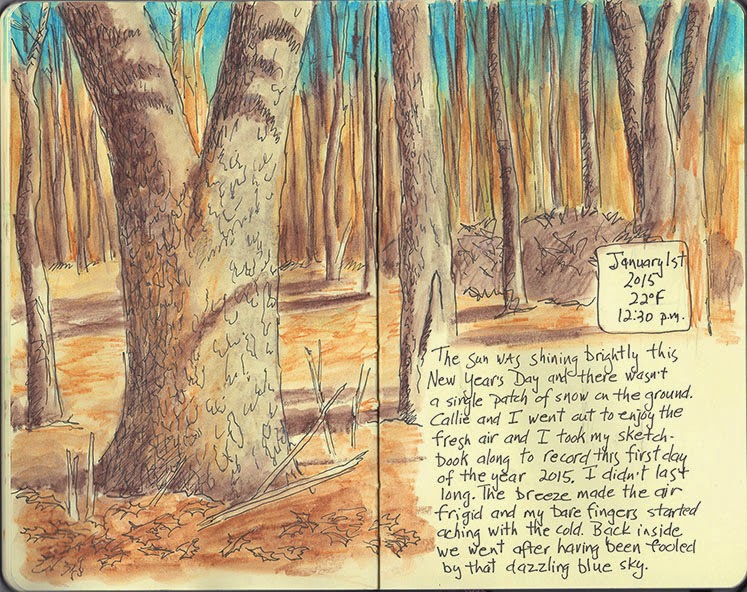 January 1st
2015
22°F
12:30 p.m.
The sun was shining brightly this
New Years Day and there wasn't
a single patch of snow on the ground.
Callie and I went out to enjoy the
fresh air and I took my sketch-
book along to record this first day
of the year 2015. I didn't last
long. The breeze made the air
frigid and my bare fingers started
aching with the cold. Back inside
we went after having been fooled
by that dazzling blue sky.